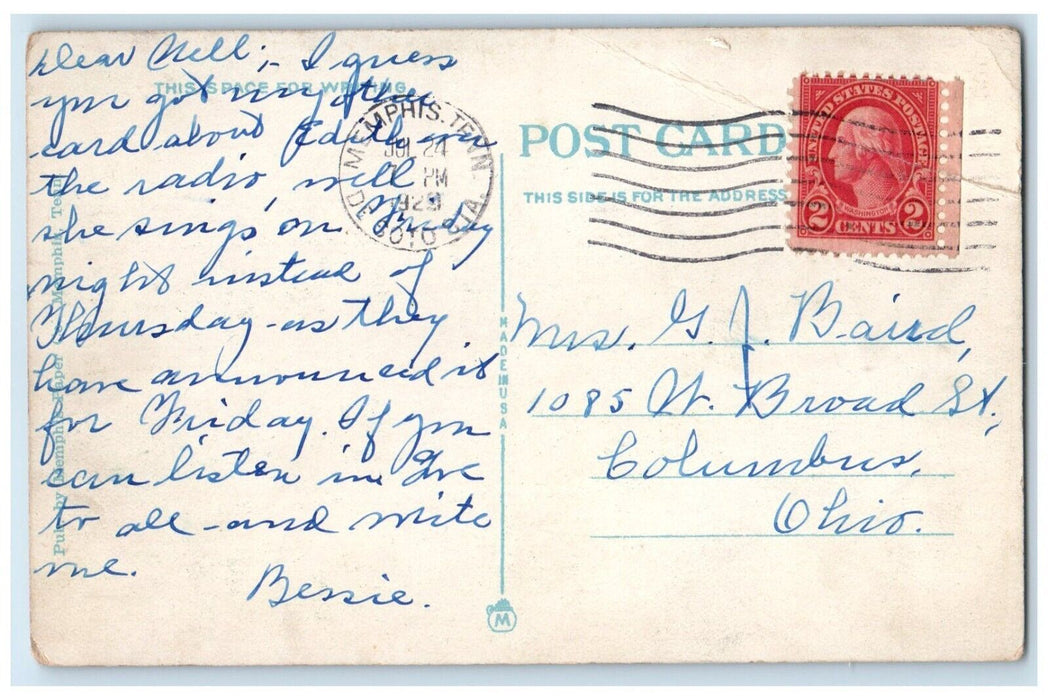 Dear Nell;- I guess
you got my other
card about Edith on
the radio well
she sings on Friday
night instead of
Thursday - as they
have announced it
for Friday. If you
can listen in. Love
to all - and write
me.
Bessie.
THIS SPACE FOR WRITING
MEMPHIS, TENN
JUL 24
PM
192
DE SOTO STA.
POST CARD
THIS SIDE IS FOR THE ADDRESS
UNITED STATES POSTAGE
WASHINGTON
2 CENTS 2
Mrs. G. J. Baird,
1085 W. Broad St.,
Columbus,
Ohio.
MADE IN USA
Pub. by Memphis Paper Memphis Te
M